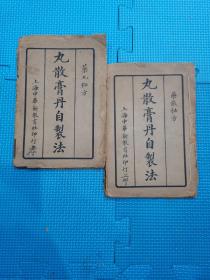 藥丸秘方
丸散膏丹自製法
上海中華新教育社印行
藥散秘方
丸散膏丹自製法
上海中華新教育社印行